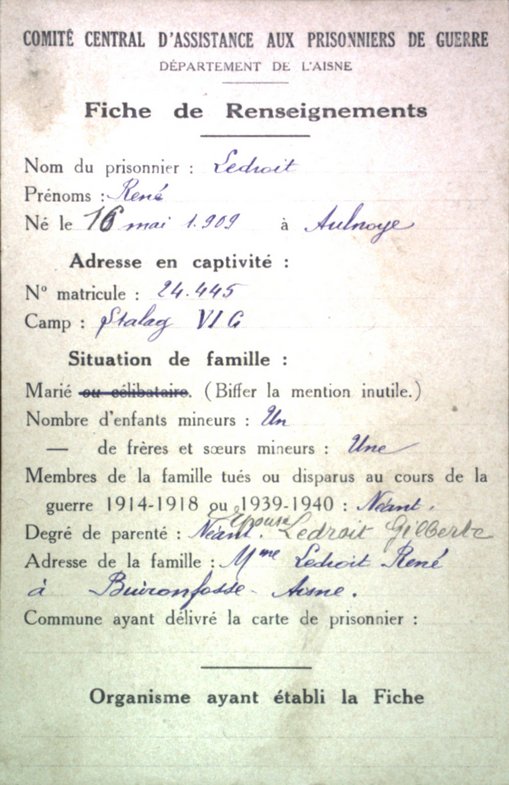 COMITÉ CENTRAL D'ASSISTANCE AUX PRISONNIERS DE GUERRE
DÉPARTEMENT DE L'AISNE
Fiche de Renseignements
Nom du prisonnier : Ledroit
Prénoms : René
Né le 16 mai 1.909 à Aulnoye
Adresse en captivité :
N° matricule : 24.445
Camp : Stalag VI G
Situation de famille :
Marié ou célibataire. (Biffer la mention inutile.)
Nombre d'enfants mineurs : Un
— de frères et sœurs mineurs : Une
Membres de la famille tués ou disparus au cours de la
guerre 1914-1918 ou 1939-1940 : Néant.
Degré de parenté : Néant. Epouse Ledroit Gilberte
Adresse de la famille : Mme Ledroit René
à Buironfosse - Aisne.
Commune ayant délivré la carte de prisonnier :
Organisme ayant établi la Fiche